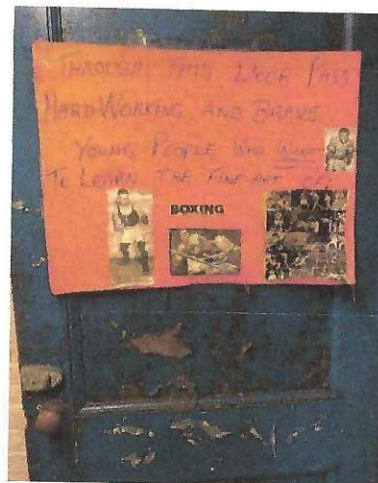 THROUGH THIS DOOR PASS
HARD WORKING AND BRAVE
YOUNG PEOPLE WHO WANT
TO LEARN THE FINE ART OF:
BOXING